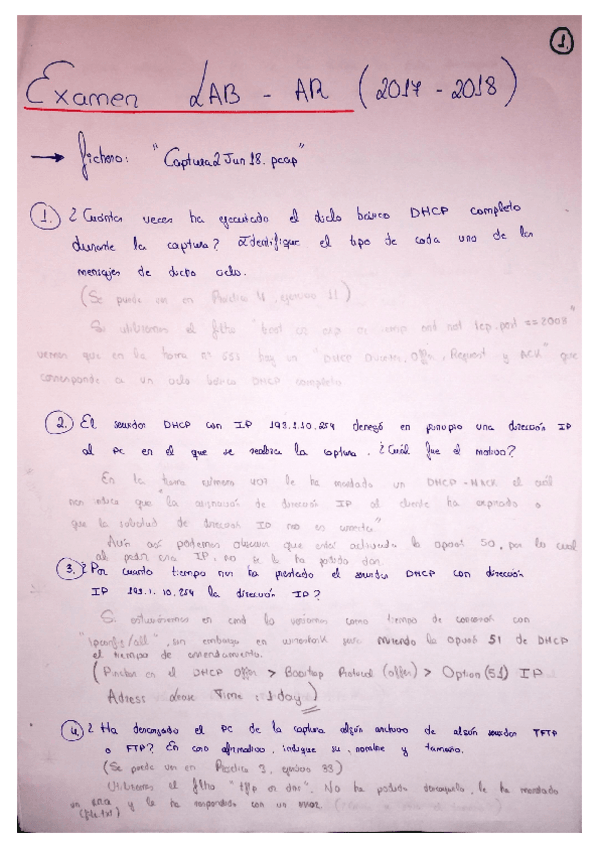 1.
Examen LAB - AR (2017 - 2018)
→ fichero: "Captura2Jun18.pcap"
1. ¿Cuántas veces ha ejecutado el ciclo básico DHCP completo
durante la captura? Identifique el tipo de cada uno de los
mensajes de dicho ciclo.
(Se puede ver en Práctica 4, ejercicio 11)
Si utilizamos el filtro "bootp or arp or icmp and not tcp.port == 2008"
vemos que en la trama nº 551 hay un "DHCP Discover, Offer, Request y ACK" que
corresponde a un ciclo básico DHCP completo
2. El servidor DHCP con IP 193.1.10.254 denegó en principio una dirección IP
al PC en el que se realiza la captura. ¿Cuál fue el motivo?
En la trama número 407 le ha mandado un DHCP-NACK el cual
nos indica que "la asignación de dirección IP al cliente ha expirado o
que la solicitud de dirección IP no es correcta."
Aún así podemos observar que está activada la opción 50, por lo cual
al pedir una IP, no se le ha podido dar.
3. ¿Por cuanto tiempo nos ha prestado el servidor DHCP con dirección
IP 193.1.10.254 la dirección IP?
Si estuviésemos en cmd lo veríamos como tiempo de concesión con
"ipconfig/all", sin embargo en wireshark será mirando la opción 51 de DHCP
el tiempo de arrendamiento.
(Pinchar en el DHCP Offer > Bootstrap Protocol (offer) > Option (51) IP
Adress Lease Time: 1 day)
4. ¿Ha descargado el PC de la captura algún archivo de algún servidor TFTP
o FTP? En caso afirmativo, indique su nombre y tamaño.
(Se puede ver en Práctica 3, ejercicio 33)
Utilizamos el filtro "tftp or dns". No ha podido descargarlo, le ha mandado
un error
(file.txt) y le ha respondido con un error